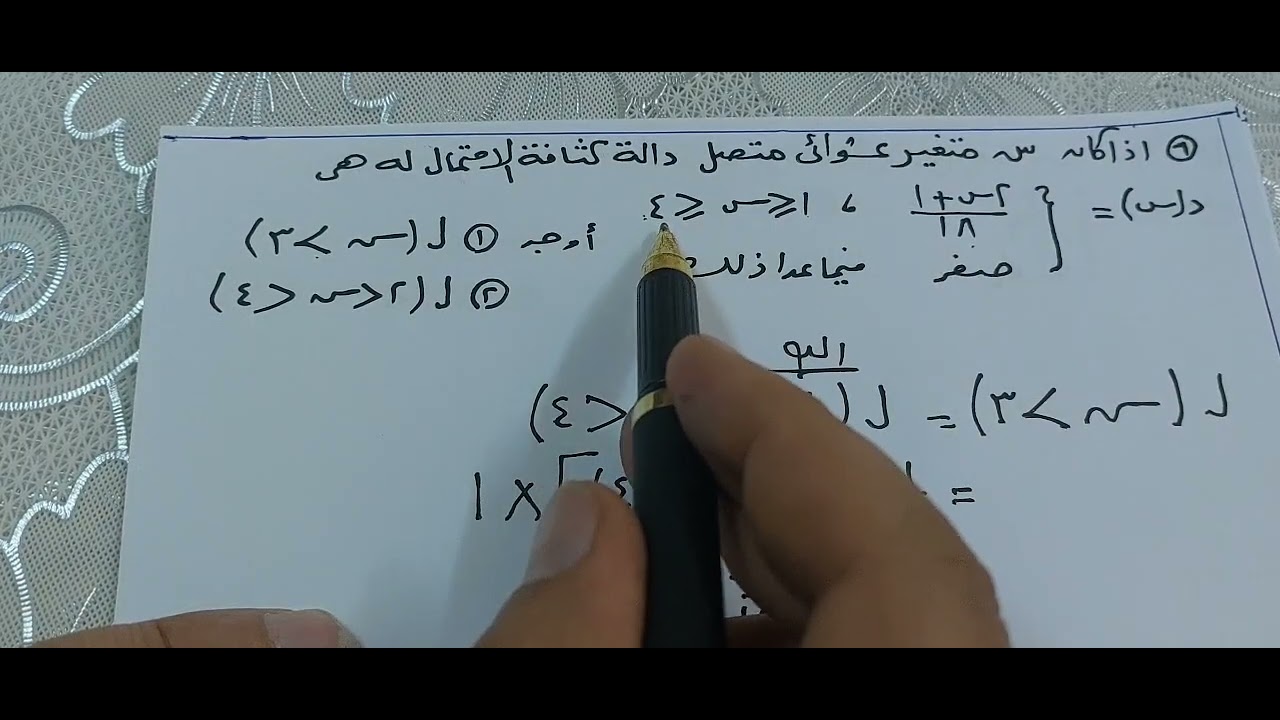 ٩ اذا كان س متغير عشوائى متصل دالة كثافة الاحتمال له هى
د(س) = { ٢س+١ / ١٨ ، ١≤س≤٤
صفر فيما عدا ذلك
أوجد ① ل (س > ٣)
② ل (٢<س<٤)
ل (س > ٣) = ل ( <٤)
= × ١